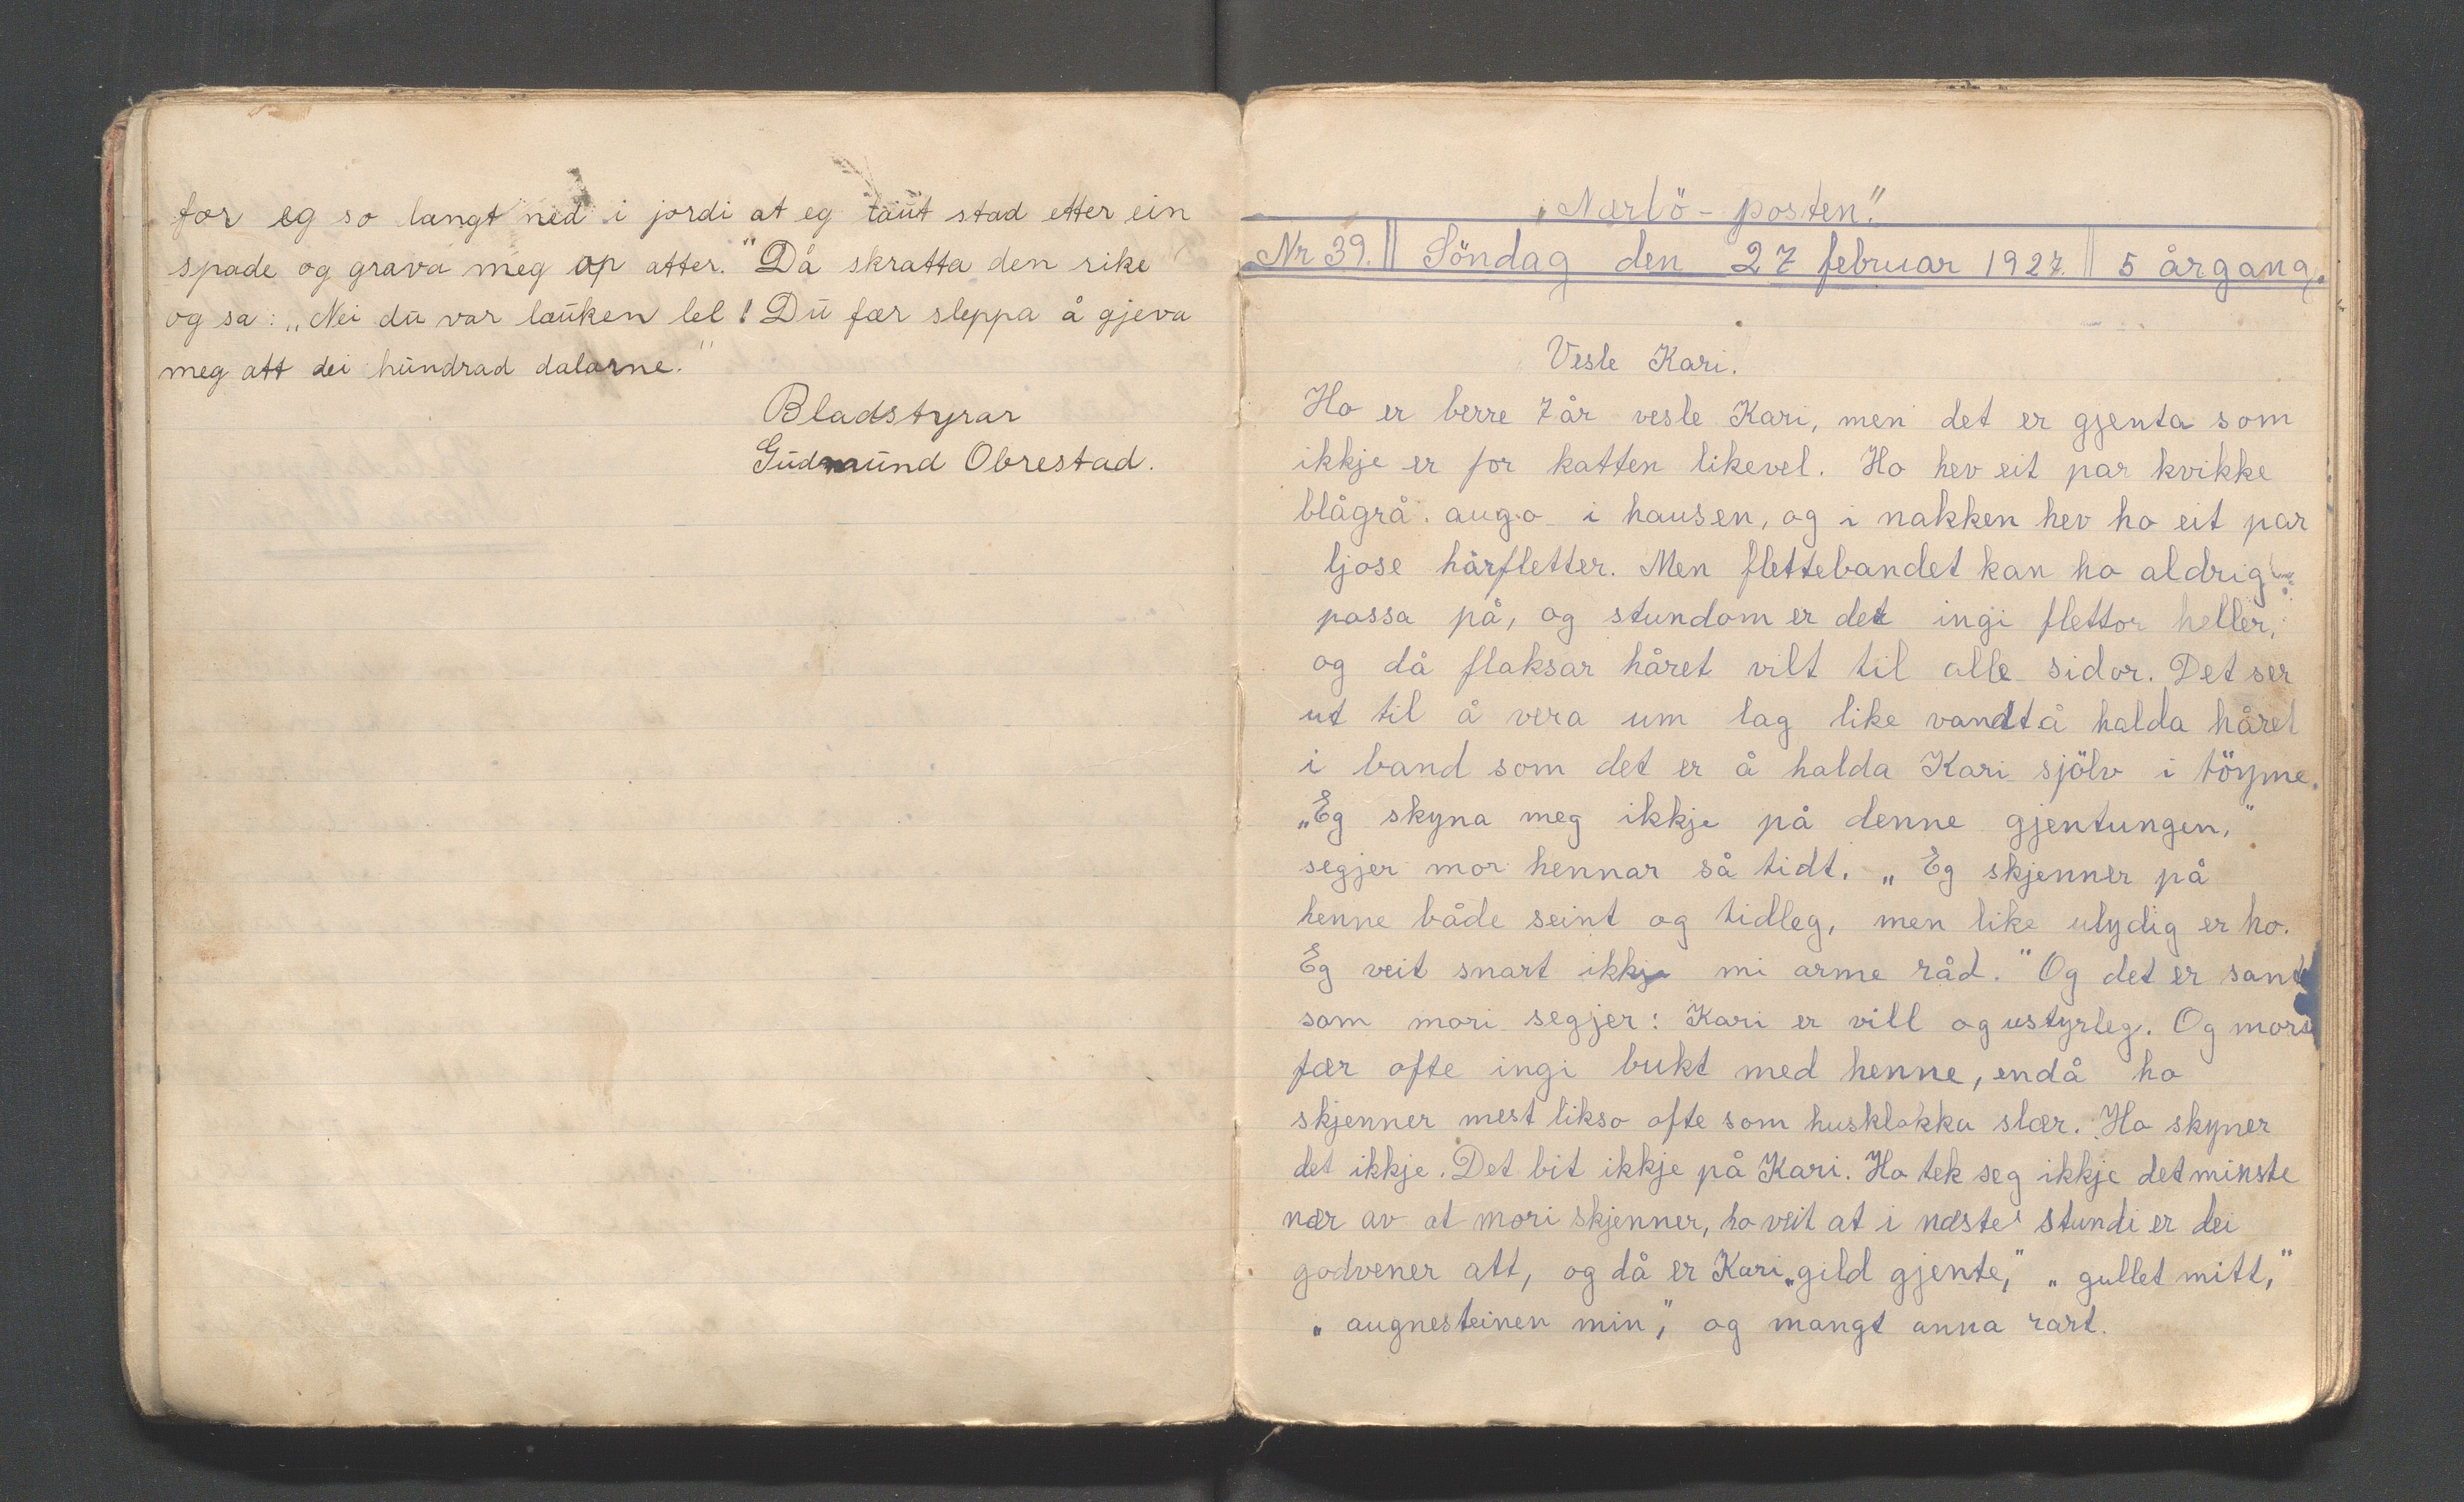 for eg so langt ned i jordi at eg taut stad etter ein
spade og grava meg op atter." Då skratta den rike
og sa: „Nei du var lauken lel! Du fær sleppa å gjeva
meg att dei hundrad dalarne."
Bladstyrar
Gudmund Obrestad.
„Nærbö-posten."
Nr 39. Söndag den 27 februar 1927. 5 årgang.
Vesle Kari.
Ho er berre 7 år vesle Kari, men det er gjenta som
ikkje er for katten likevel. Ho hev eit par kvikke
blågrå augo i hausen, og i nakken hev ho eit par
ljose hårfletter. Men flettebandet kan ho aldrig
passa på, og stundom er det ingi flettor heller,
og då flaksar håret vilt til alle sidor. Det ser
ut til å vera um lag like vandt å halda håret
i band som det er å halda Kari sjölv i töyme.
„Eg skyna meg ikkje på denne gjentungen,"
segjer mor hennar så tidt. „Eg skjenner på
henne både seint og tidleg, men like ulydig er ho.
Eg veit snart ikkje mi arme råd." Og det er sant
som mori segjer: Kari er vill og ustyrleg. Og mori
fær ofte ingi bukt med henne, endå ho
skjenner mest likso ofte som husklokka slær. Ho skyner
det ikkje. Det bit ikkje på Kari. Ho tek seg ikkje det minste
nær av at mori skjenner, ho veit at i næste stundi er dei
godvener att, og då er Kari „gild gjente," „gullet mitt,"
„augnesteinen min," og mangt anna rart.